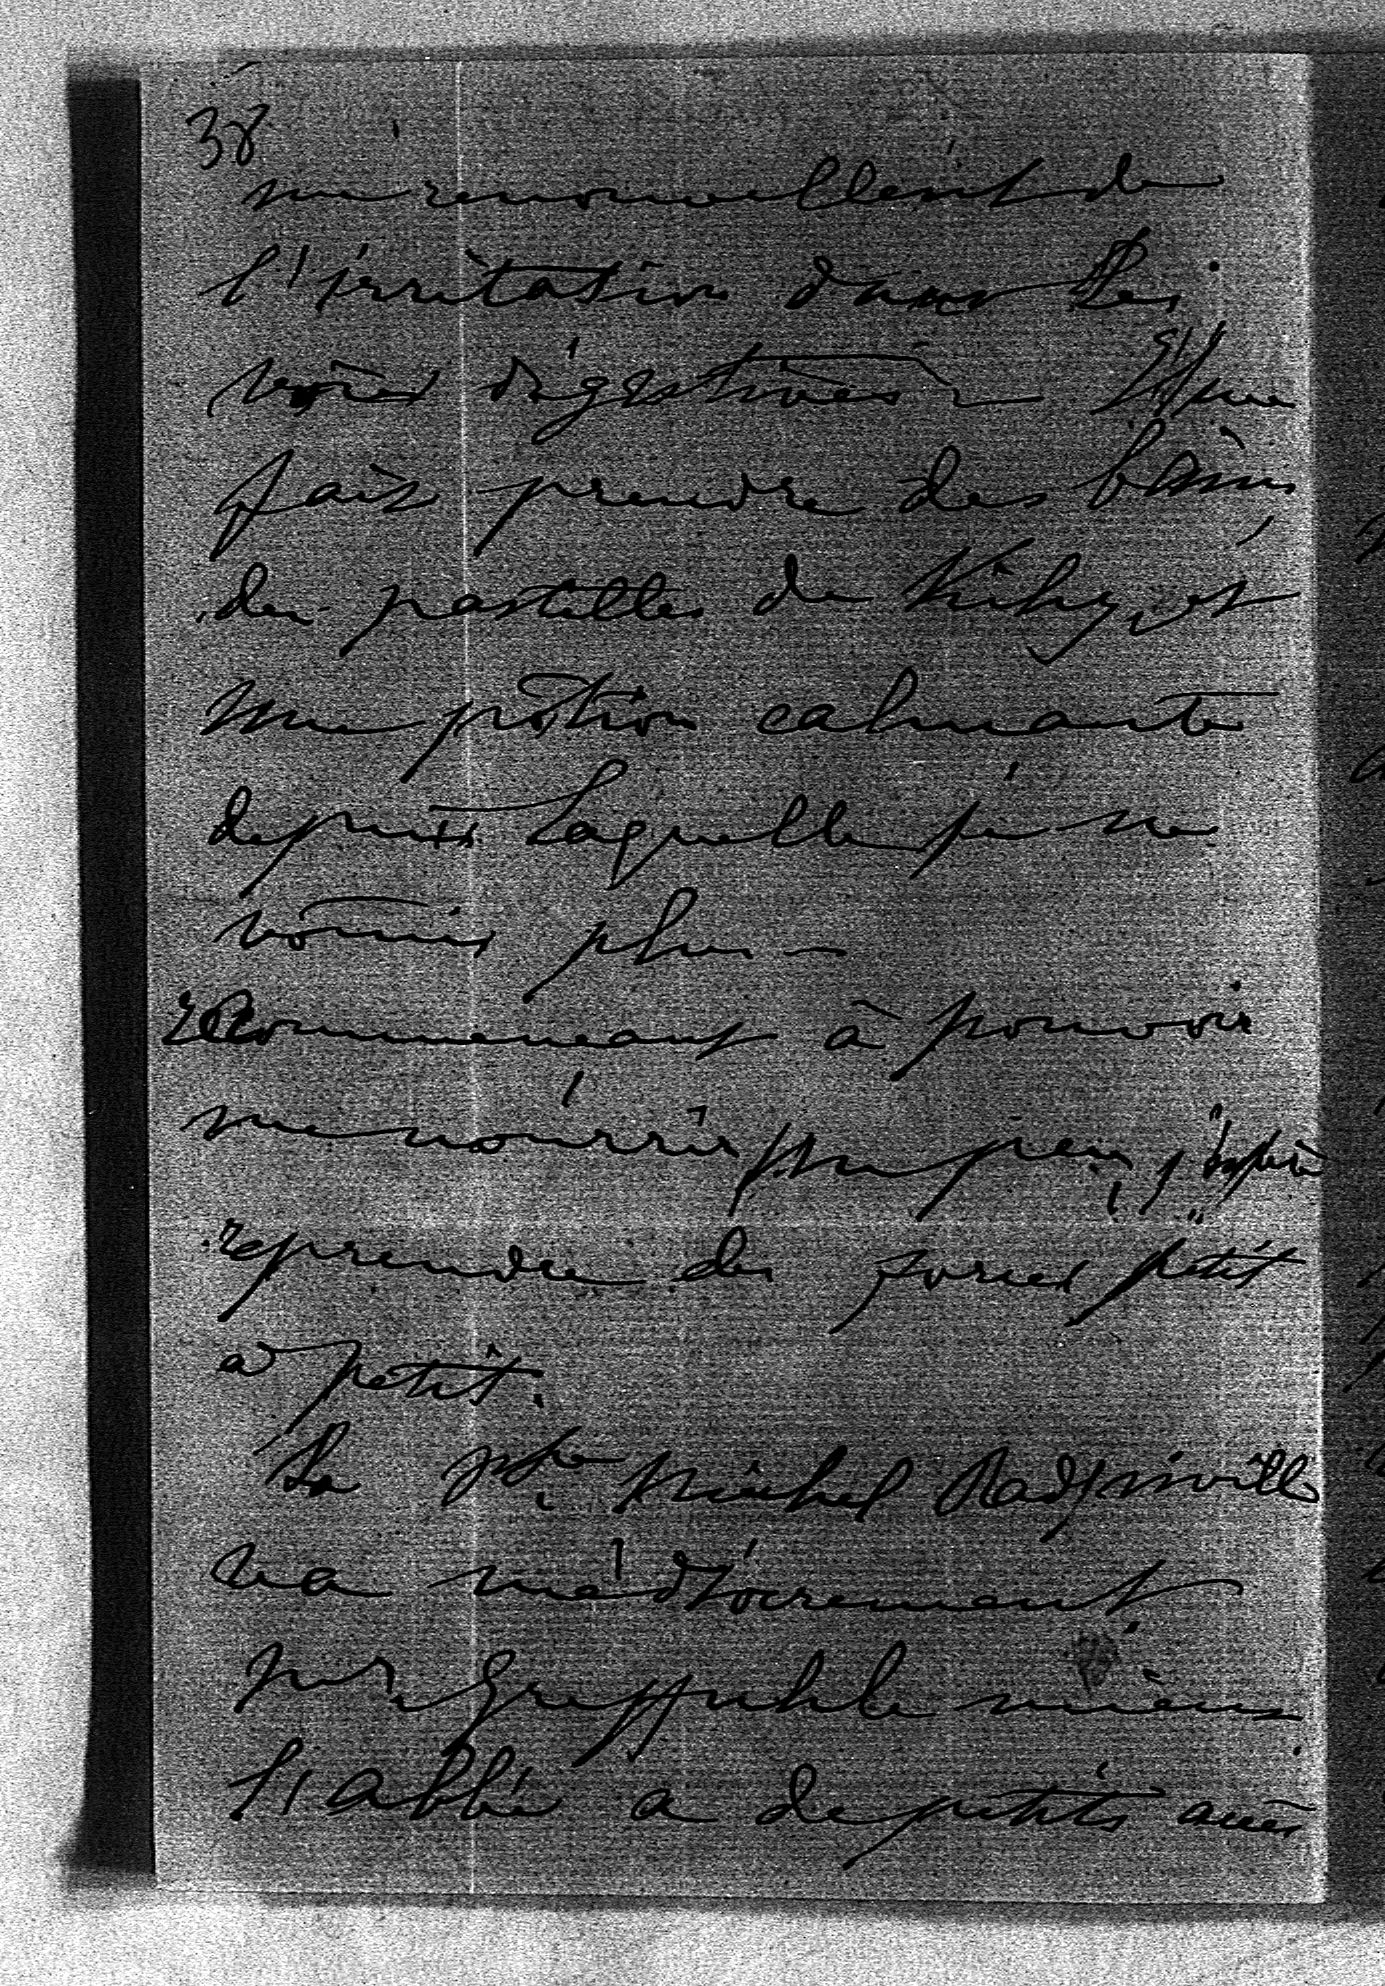 38
me renouvellent de
l'irritation dans les
voies digestives – Il me
fait prendre des bains
des pastilles de Vichy, et
une potion calmante
depuis laquelle je ne
vomis plus –
recommencant à pouvoir
me nourrir un peu, j'espère
reprendre des forces petit
à petit.
La psse Michel Radziwill
va médiocrement
Mr Greffuhle mieux
l'abbé a de petits accès